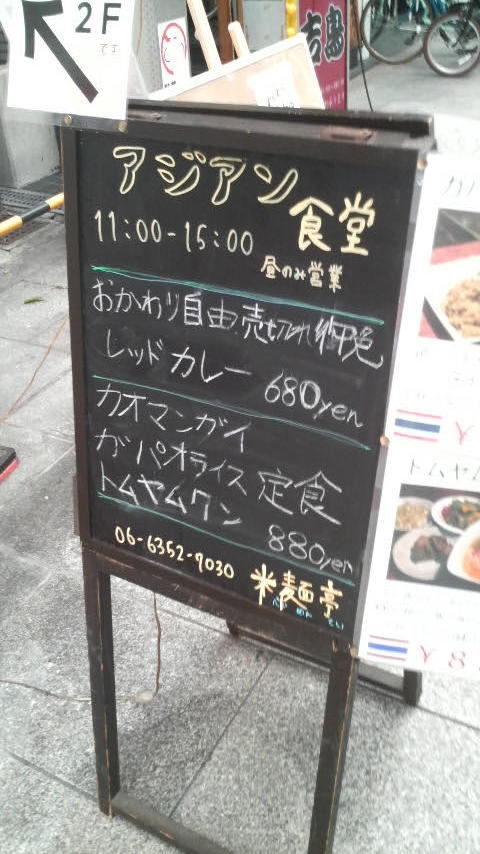 2F
です
アジアン
食堂
11:00-15:00
昼のみ営業
おかわり自由.売切れ御免
レッドカレー 680yen
カオマンガイ
ガパオライス 定食
トムヤムクン
880yen
06-6352-7030
米麺亭
べい めん てい
吉島
トムヤム